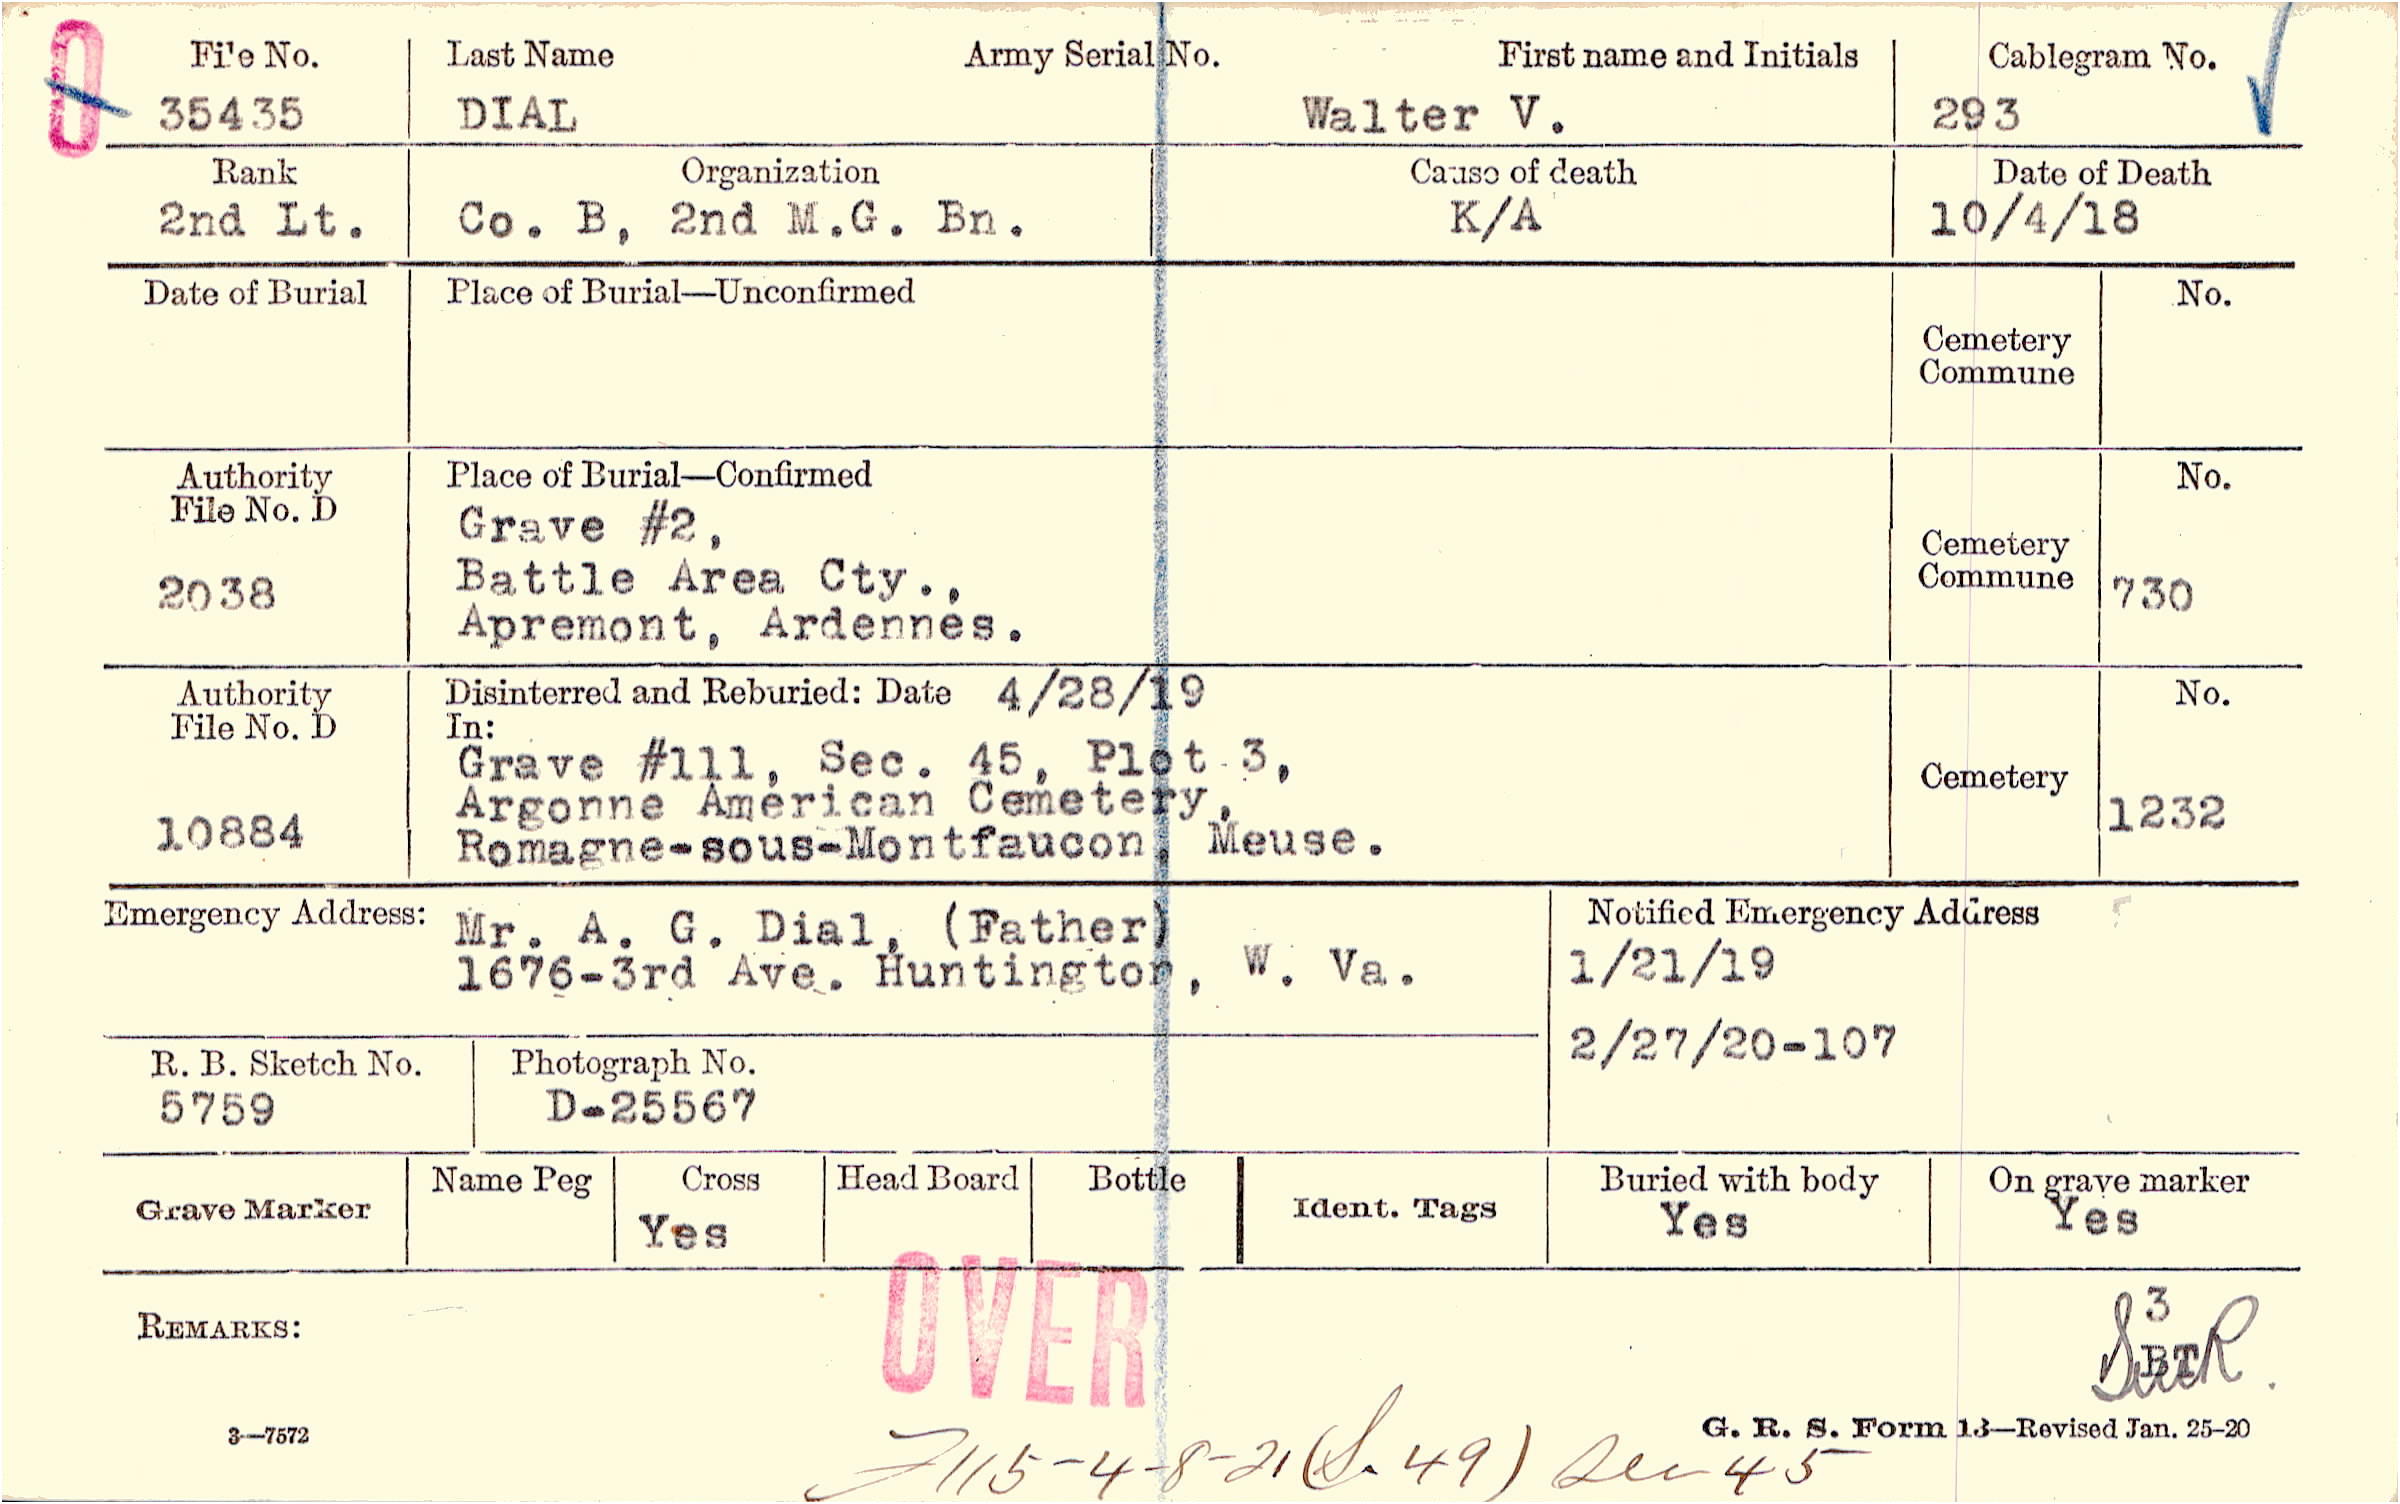 0
File No. Last Name Army Serial No. First name and Initials Cablegram No.
35435 DIAL Walter V. 293
Rank Organization Cause of death Date of Death
2nd Lt. Co. B, 2nd M.G. Bn. K/A 10/4/18
Date of Burial Place of Burial—Unconfirmed No.
Cemetery
Commune
Authority Place of Burial—Confirmed No.
File No. D
Grave #2,
Cemetery
Commune
2038 Battle Area Cty., 730
Apremont, Ardennes.
Authority Disinterred and Reburied: Date 4/28/19 No.
File No. D In:
Grave #111, Sec. 45, Plot 3,
Cemetery
Argonne American Cemetery, 1232
10884 Romagne-sous-Montfaucon, Meuse.
Emergency Address: Mr. A. G. Dial, (Father) Notified Emergency Address
1676-3rd Ave. Huntington, W. Va. 1/21/19
2/27/20-107
R. B. Sketch No. Photograph No.
5759 D-25567
Name Peg Cross Head Board Bottle Buried with body On grave marker
Grave Marker Ident. Tags
Yes Yes Yes
OVER
REMARKS:
3
BT
3—7572 G. R. S. Form 13—Revised Jan. 25-20
115-4-8-21 (S. 49) Sec 45